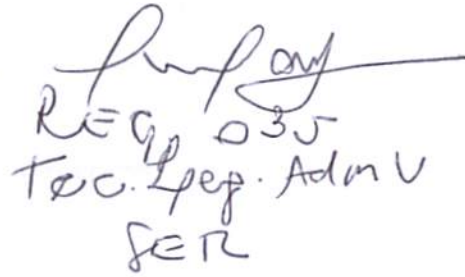 REG 035
Tec. Leg. Adm V
SER